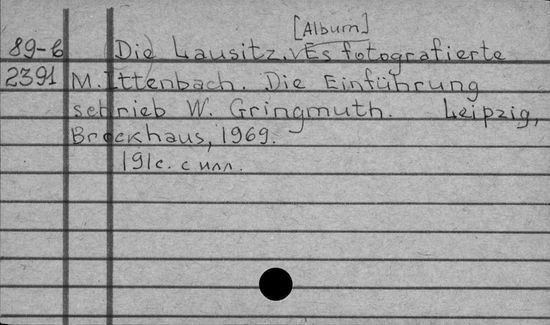 [Album]
89-6 Die Lausitz. Es fotografierte
2391 M. Ittenbach. Die Einführung
schrieb W. Gringmuth. Leipzig,
Brockhaus, 1969.
191с. с илл.